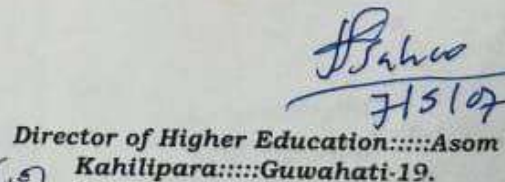 7/5/07
Director of Higher Education:::::Asom
Kahilipara:::::Guwahati-19.